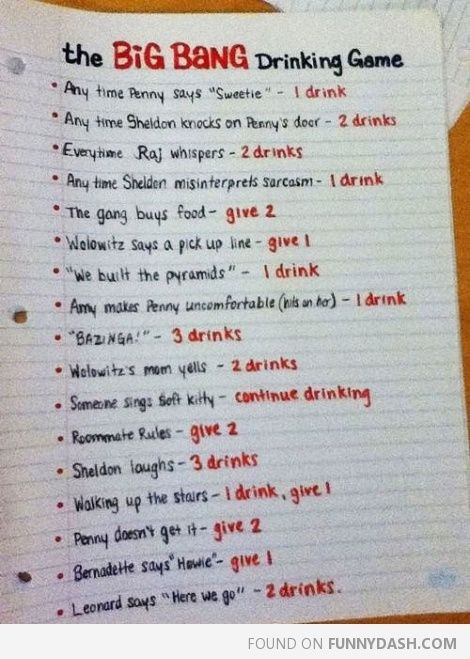 the BIG BANG Drinking Game
• Any time Penny says "Sweetie" - 1 drink
• Any time Sheldon knocks on Penny's door - 2 drinks
• Everytime Raj whispers - 2 drinks
• Any time Sheldon misinterprets sarcasm - 1 drink
• The gang buys food - give 2
• Wolowitz says a pick up line - give 1
• "We built the pyramids" - 1 drink
• Amy makes Penny uncomfortable (hits on her) - 1 drink
• "BAZINGA!" - 3 drinks
• Wolowitz's mom yells - 2 drinks
• Someone sings Soft Kitty - continue drinking
• Roommate Rules - give 2
• Sheldon laughs - 3 drinks
• Walking up the stairs - 1 drink, give 1
• Penny doesn't get it - give 2
• Bernadette says "Howie" - give 1
• Leonard says "Here we go" - 2 drinks.
FOUND ON FUNNYDASH.COM